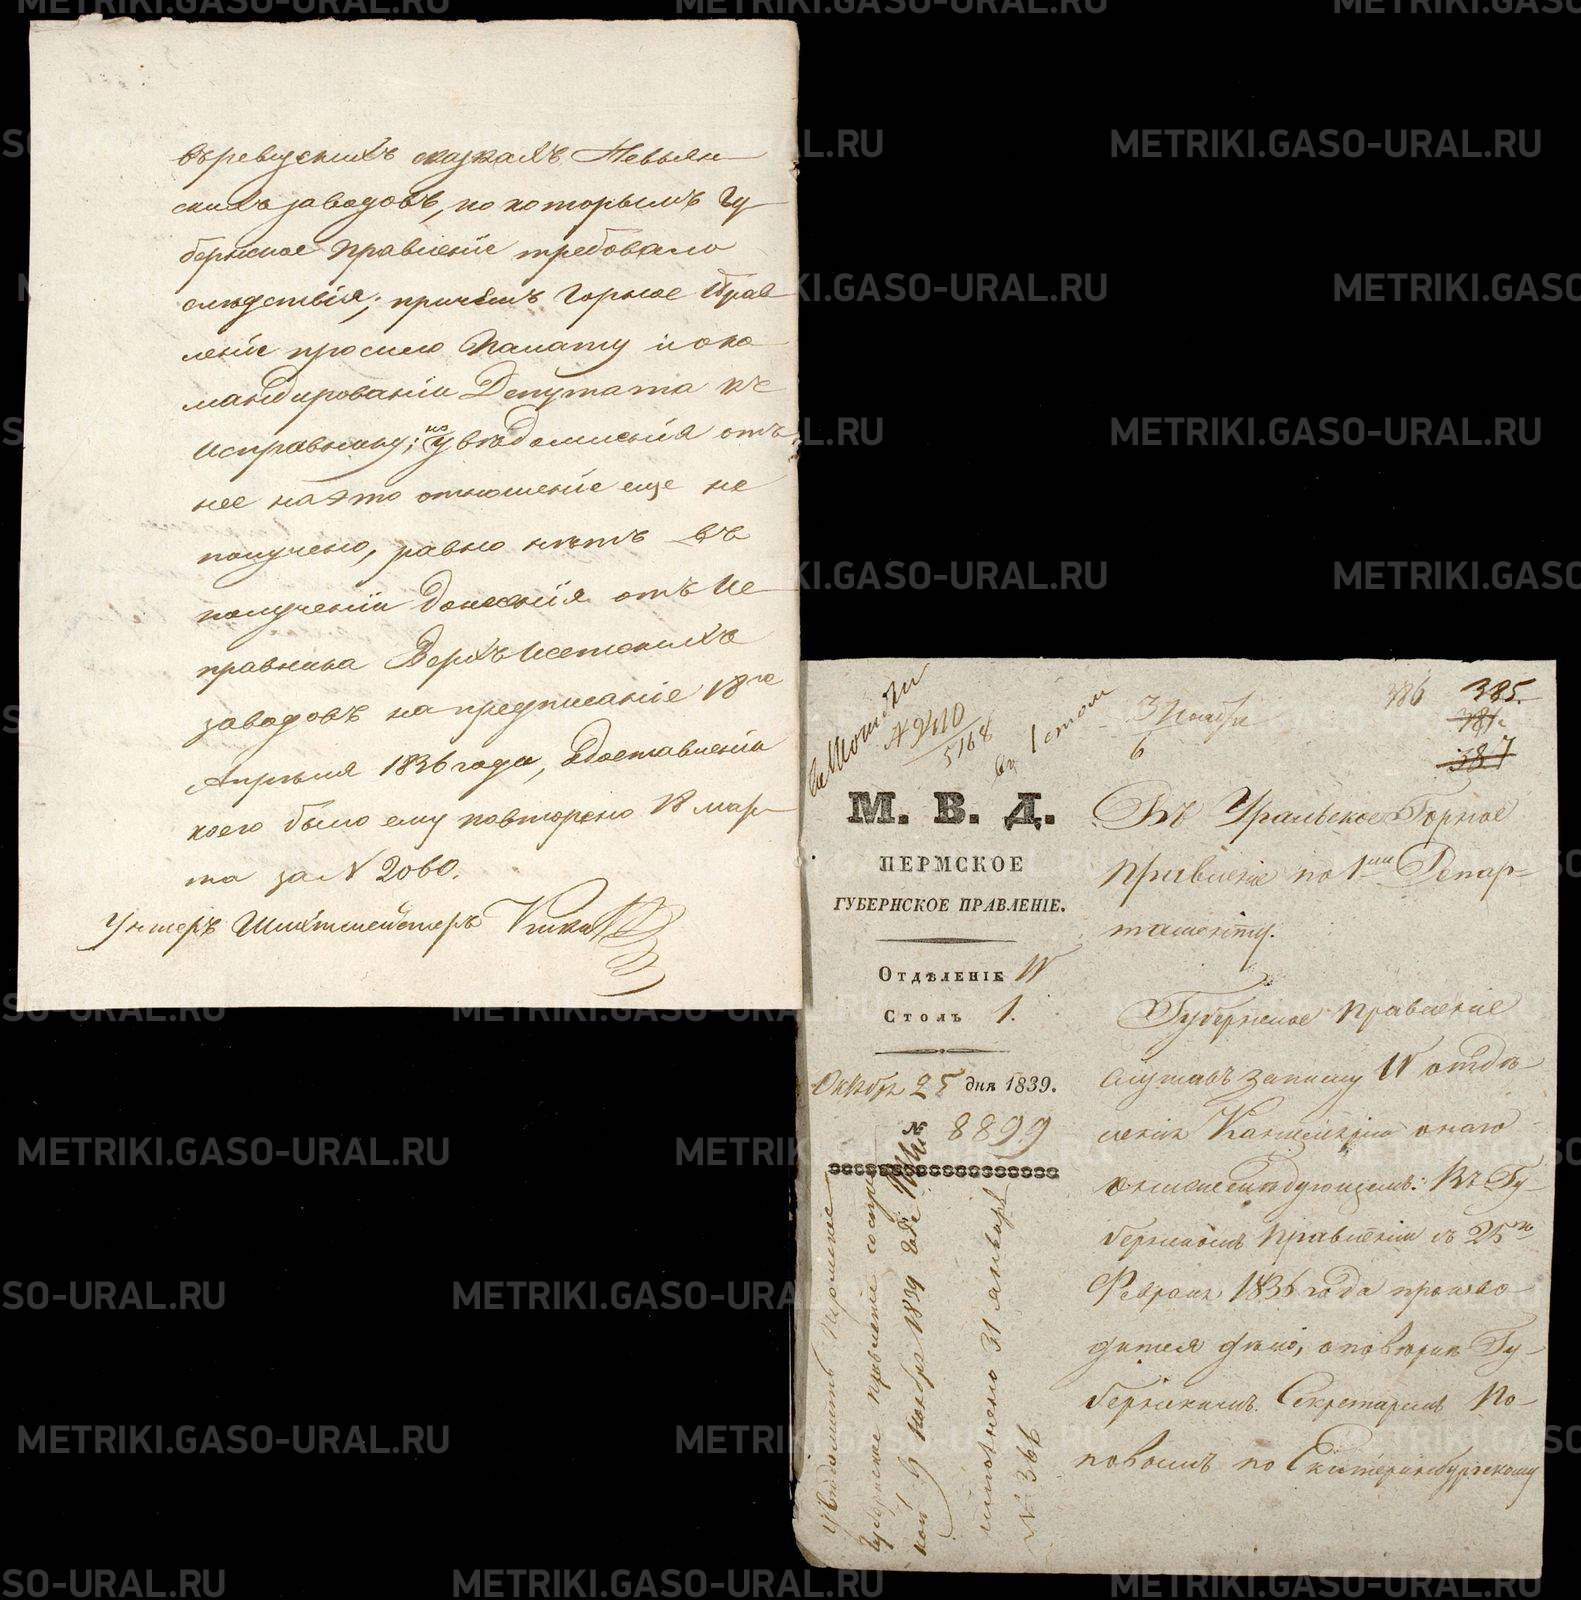 въ ревизскихъ сказкахъ Невьян
скихъ заводовъ, по которымъ Гу
бернское Правленіе требовало
слѣдствія; причемъ Горное Прав
леніе просило Палату и о ко
мандированіи Депутата къ
Исправнику; но увѣдомленія отъ
нее на это отношеніе еще не
получено, равно нѣтъ въ
полученіи донесенія отъ Ис
правника Верхъ Исетскихъ
заводовъ на предписаніе 18го
Апрѣля 1836 года, о доставленіи
коего было ему повторено 18 мар
та за N 2060.
Унтеръ Шихтмейстеръ
386 385.
381.
387
3 Ноября
6
5168
1 столъ
М. В. Д.
ПЕРМСКОЕ
ГУБЕРНСКОЕ ПРАВЛЕНІЕ.
Отдѣленіе IV
Столъ 1.
Октября 25 дня 1839.
№ 8899
Въ Уральское Горное
Правленіе по 1му Депар
таменту.
Губернское Правленіе
слушавъ записку IV отдѣ
ленія Канцеляріи онаго
о нижеслѣдующемъ: Въ Гу
бернскомъ Правленіи съ 25го
Февраля 1836 года произво
дится дѣло, о повѣркѣ Гу
бернскимъ Секретаремъ По
повымъ по Екатеринбургскому
Увѣдомить Пермское
Губернское Правленіе
Ноября 1839 года
исполнено 31 января
N 366
METRIKI.GASO-URAL.RU